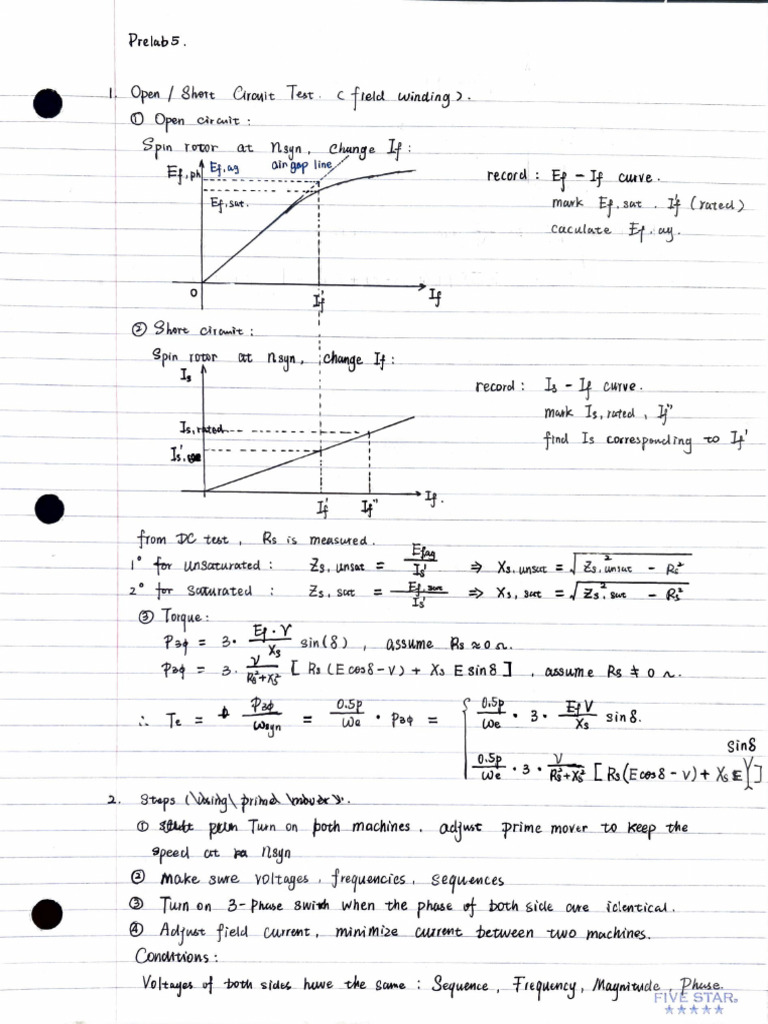 Prelab 5.
1. Open / Short Circuit Test. (field winding).
① Open circuit:
Spin rotor at nsyn, change If:
Ef,ph
Ef,ag
air gap line
Ef,sat.
0
If'
If
record: Ef - If curve.
mark Ef,sat. If' (rated)
caculate Ef,ag.
② Short circuit:
Spin rotor at nsyn, change If:
Is
Is,rated
Is'
If'
If''
If.
record: Is - If curve.
mark Is,rated, If''
find Is corresponding to If'
from DC test, Rs is measured.
1° for unsaturated: Zs,unsat = Ef,ag / Is' ⇒ Xs,unsat = √(Zs,unsat² - Rs²)
2° for saturated: Zs,sat = Ef,sat / Is' ⇒ Xs,sat = √(Zs,sat² - Rs²)
③ Torque:
P3φ = 3· Ef·V / Xs sin(δ), assume Rs ≈ 0 Ω.
P3φ = 3· V / Rs²+Xs² [Rs(E cosδ - V) + Xs E sinδ], assume Rs ≠ 0 Ω.
∴ Te = P3φ / ωsyn = 0.5p / ωe · P3φ = { 0.5p / ωe · 3 · Ef V / Xs sinδ.
0.5p / ωe · 3 · V / Rs²+Xs² [Rs(E cosδ - V) + Xs E sinδ]
2. Steps (using prime mover).
① Turn on both machines. adjust prime mover to keep the
speed at nsyn
② Make sure voltages, frequencies, sequences
③ Turn on 3-phase swith when the phase of both side are identical.
④ Adjust field current, minimize current between two machines.
Conditions:
Voltages of both sides have the same: Sequence, Frequency, Magnitude, Phase.
FIVE STAR.